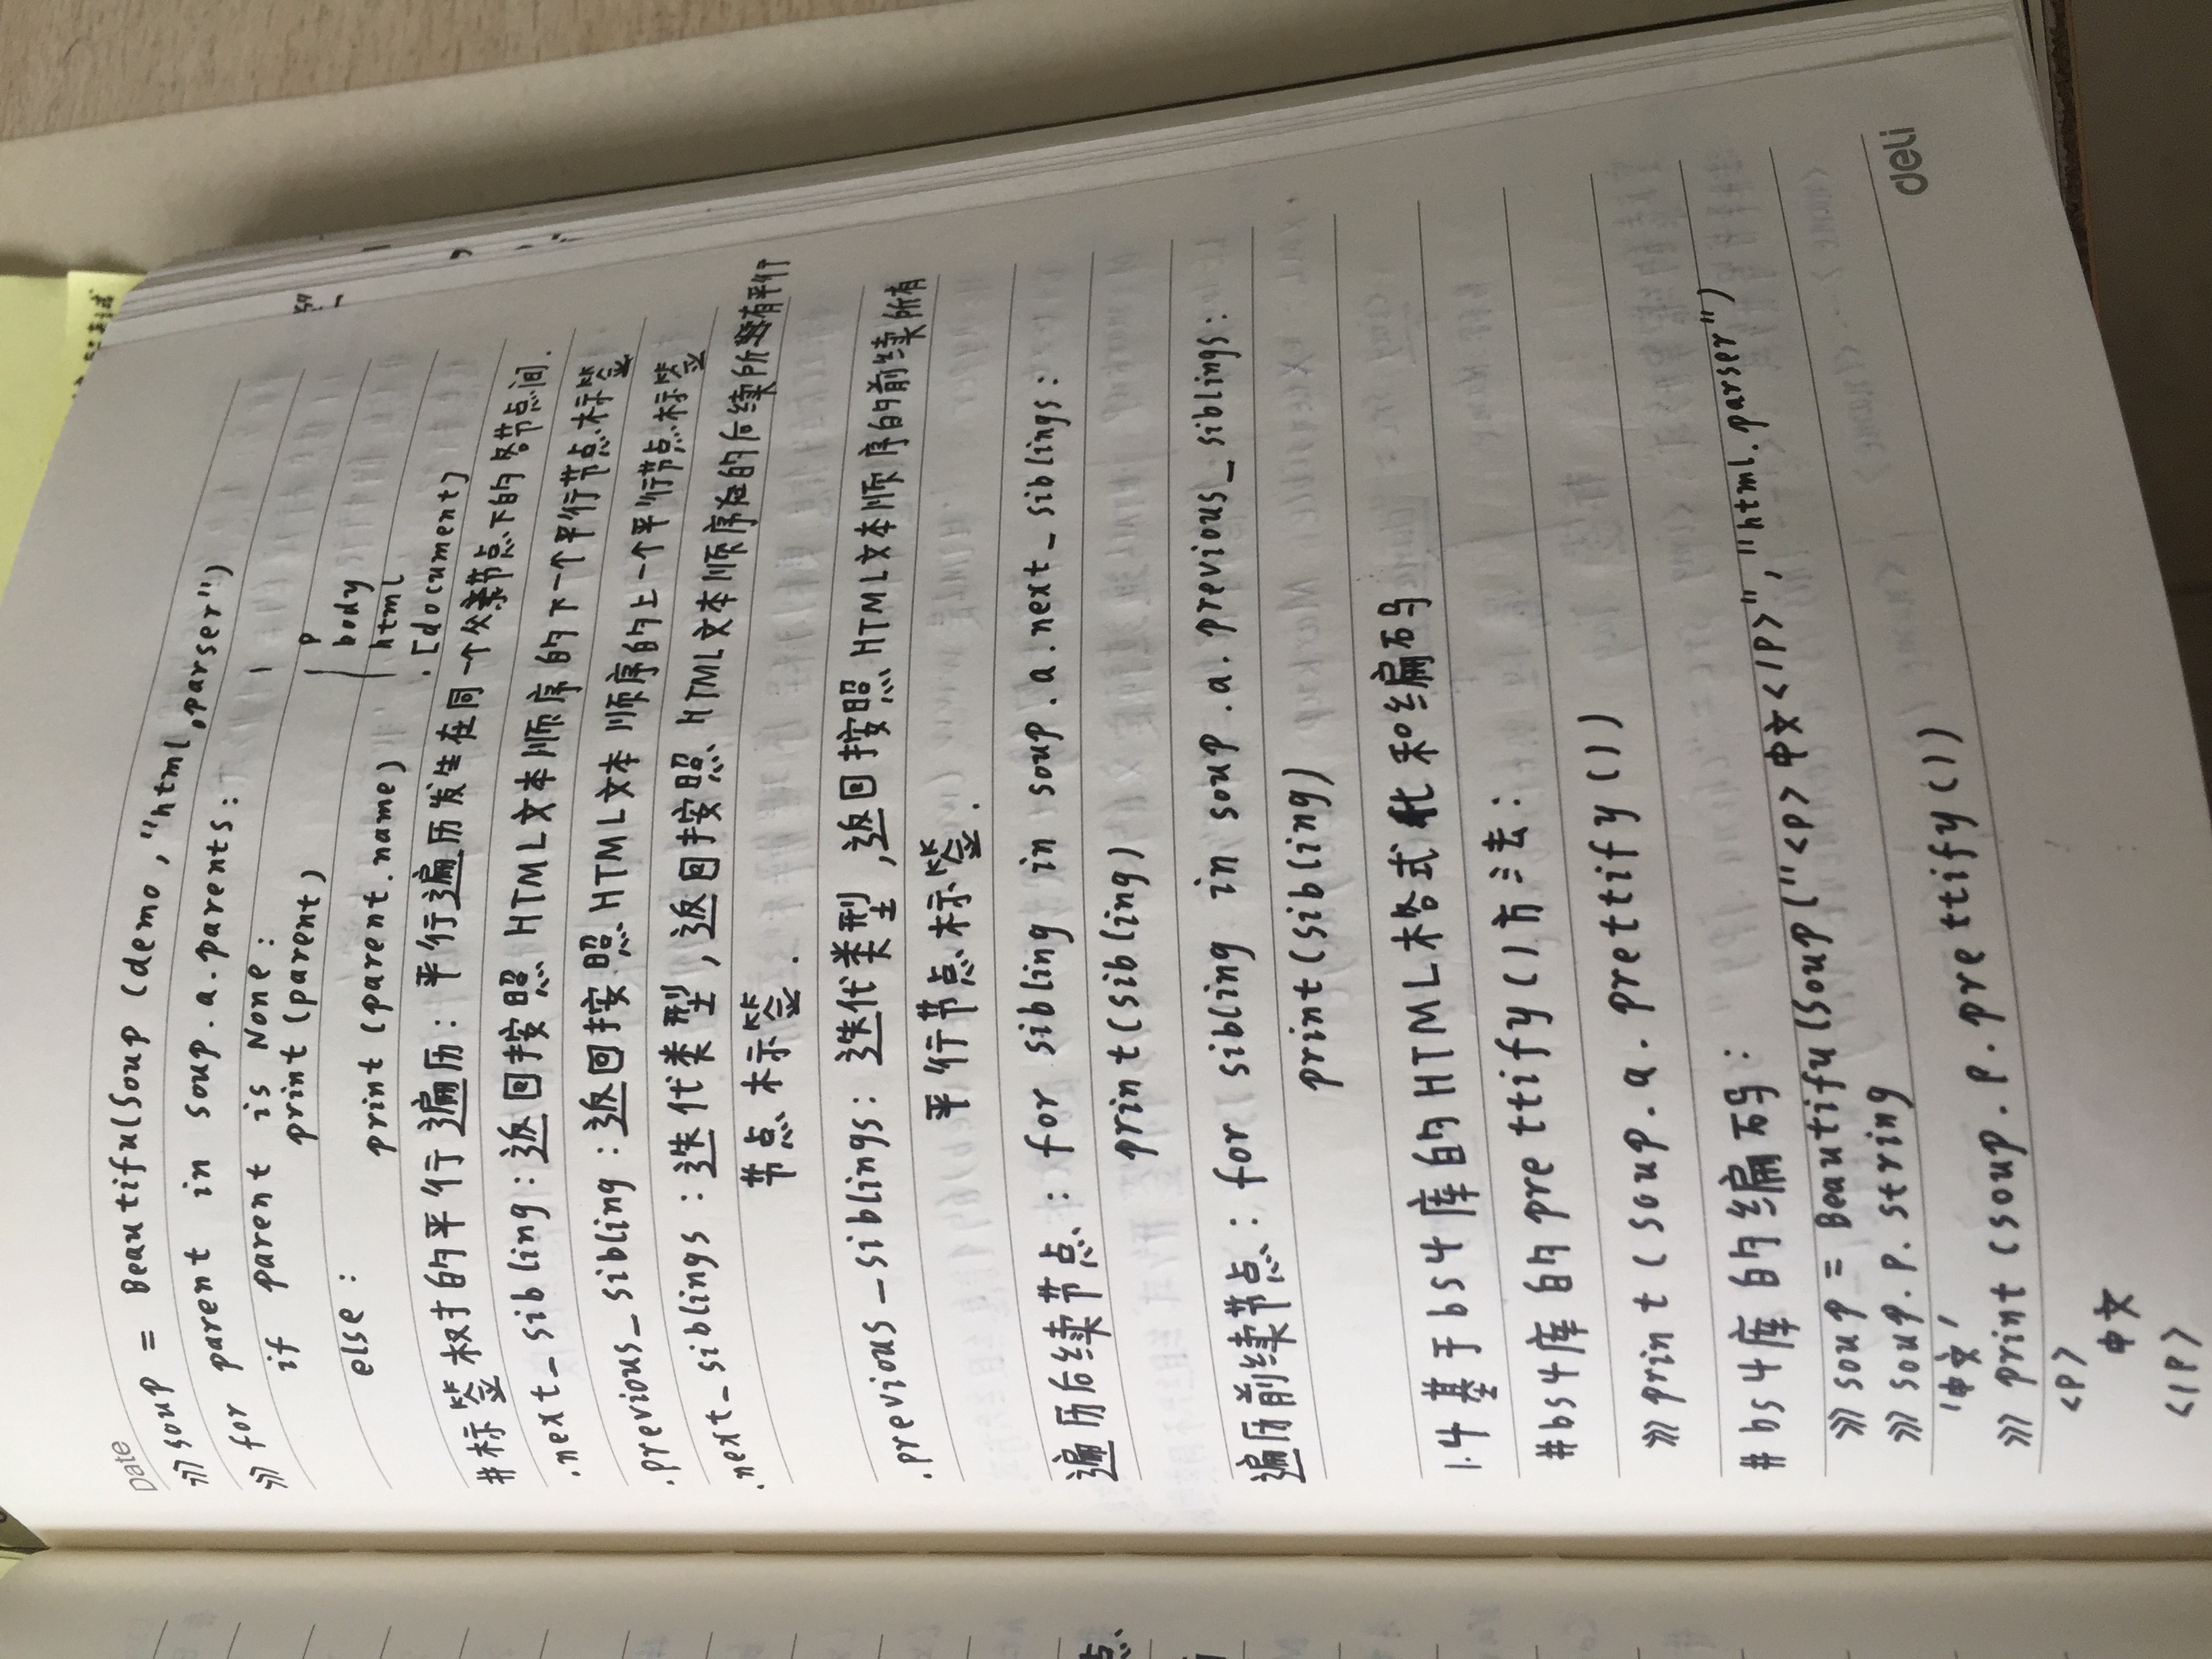 Date
>>> soup = BeautifulSoup (demo, "html.parser")
>>> for parent in soup.a.parents:
if parent is None:
print (parent)
else:
print (parent.name)
p
body
html
[document]
#标签树的平行遍历: 平行遍历发生在同一个父亲节点下的各节点间.
.next_sibling: 返回按照HTML文本顺序的下一个平行节点标签
.previous_sibling: 返回按照HTML文本顺序的上一个平行节点标签
.next_siblings: 迭代类型, 返回按照HTML文本顺序的后续所有平行
节点标签.
.previous_siblings: 迭代类型, 返回按照HTML文本顺序的前续所有
平行节点标签.
遍历后续节点: for sibling in soup.a.next_siblings:
print(sibling)
遍历前续节点: for sibling in soup.a.previous_siblings:
print(sibling)
1.4 基于bs4库的HTML格式化和编码
#bs4库的prettify()方法:
>>> print (soup.a.prettify())
#bs4库的编码:
>>> soup = BeautifulSoup ("<p>中文</p>", "html.parser")
>>> soup.p.string
'中文'
>>> print (soup.p.prettify())
<p>
中文
</p>
deli